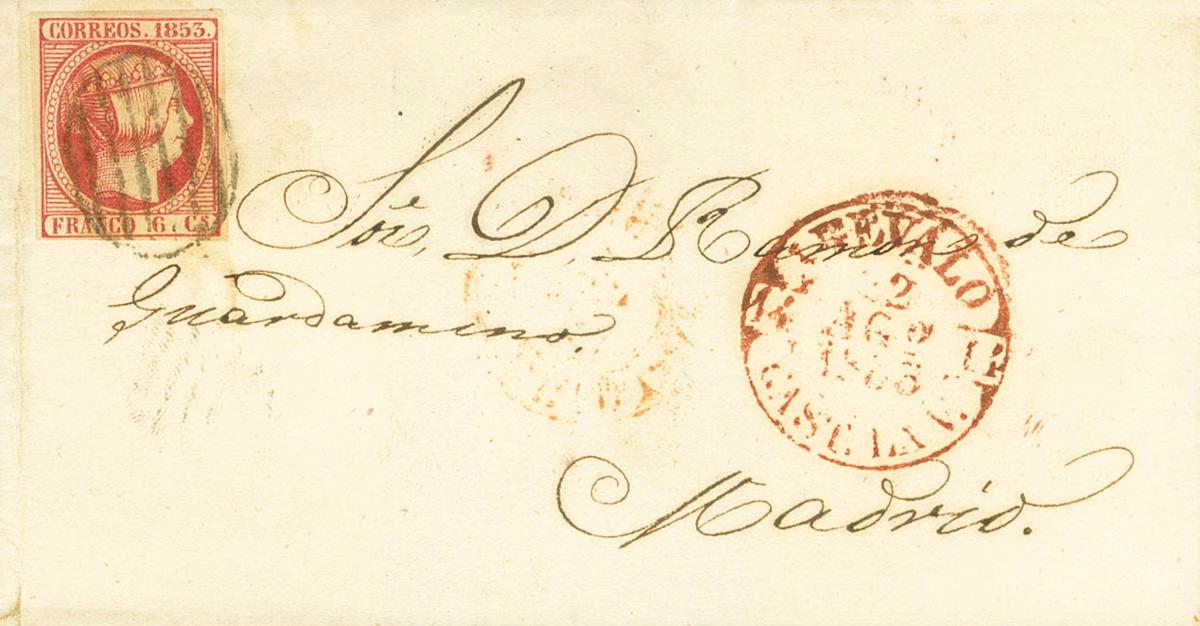 CORREOS. 1853.
FRANCO 6. Cs.
Sör. D. Ramon de
Guardamino.
Madrid.
AREVALO
2
AGO
CAST. LA V.